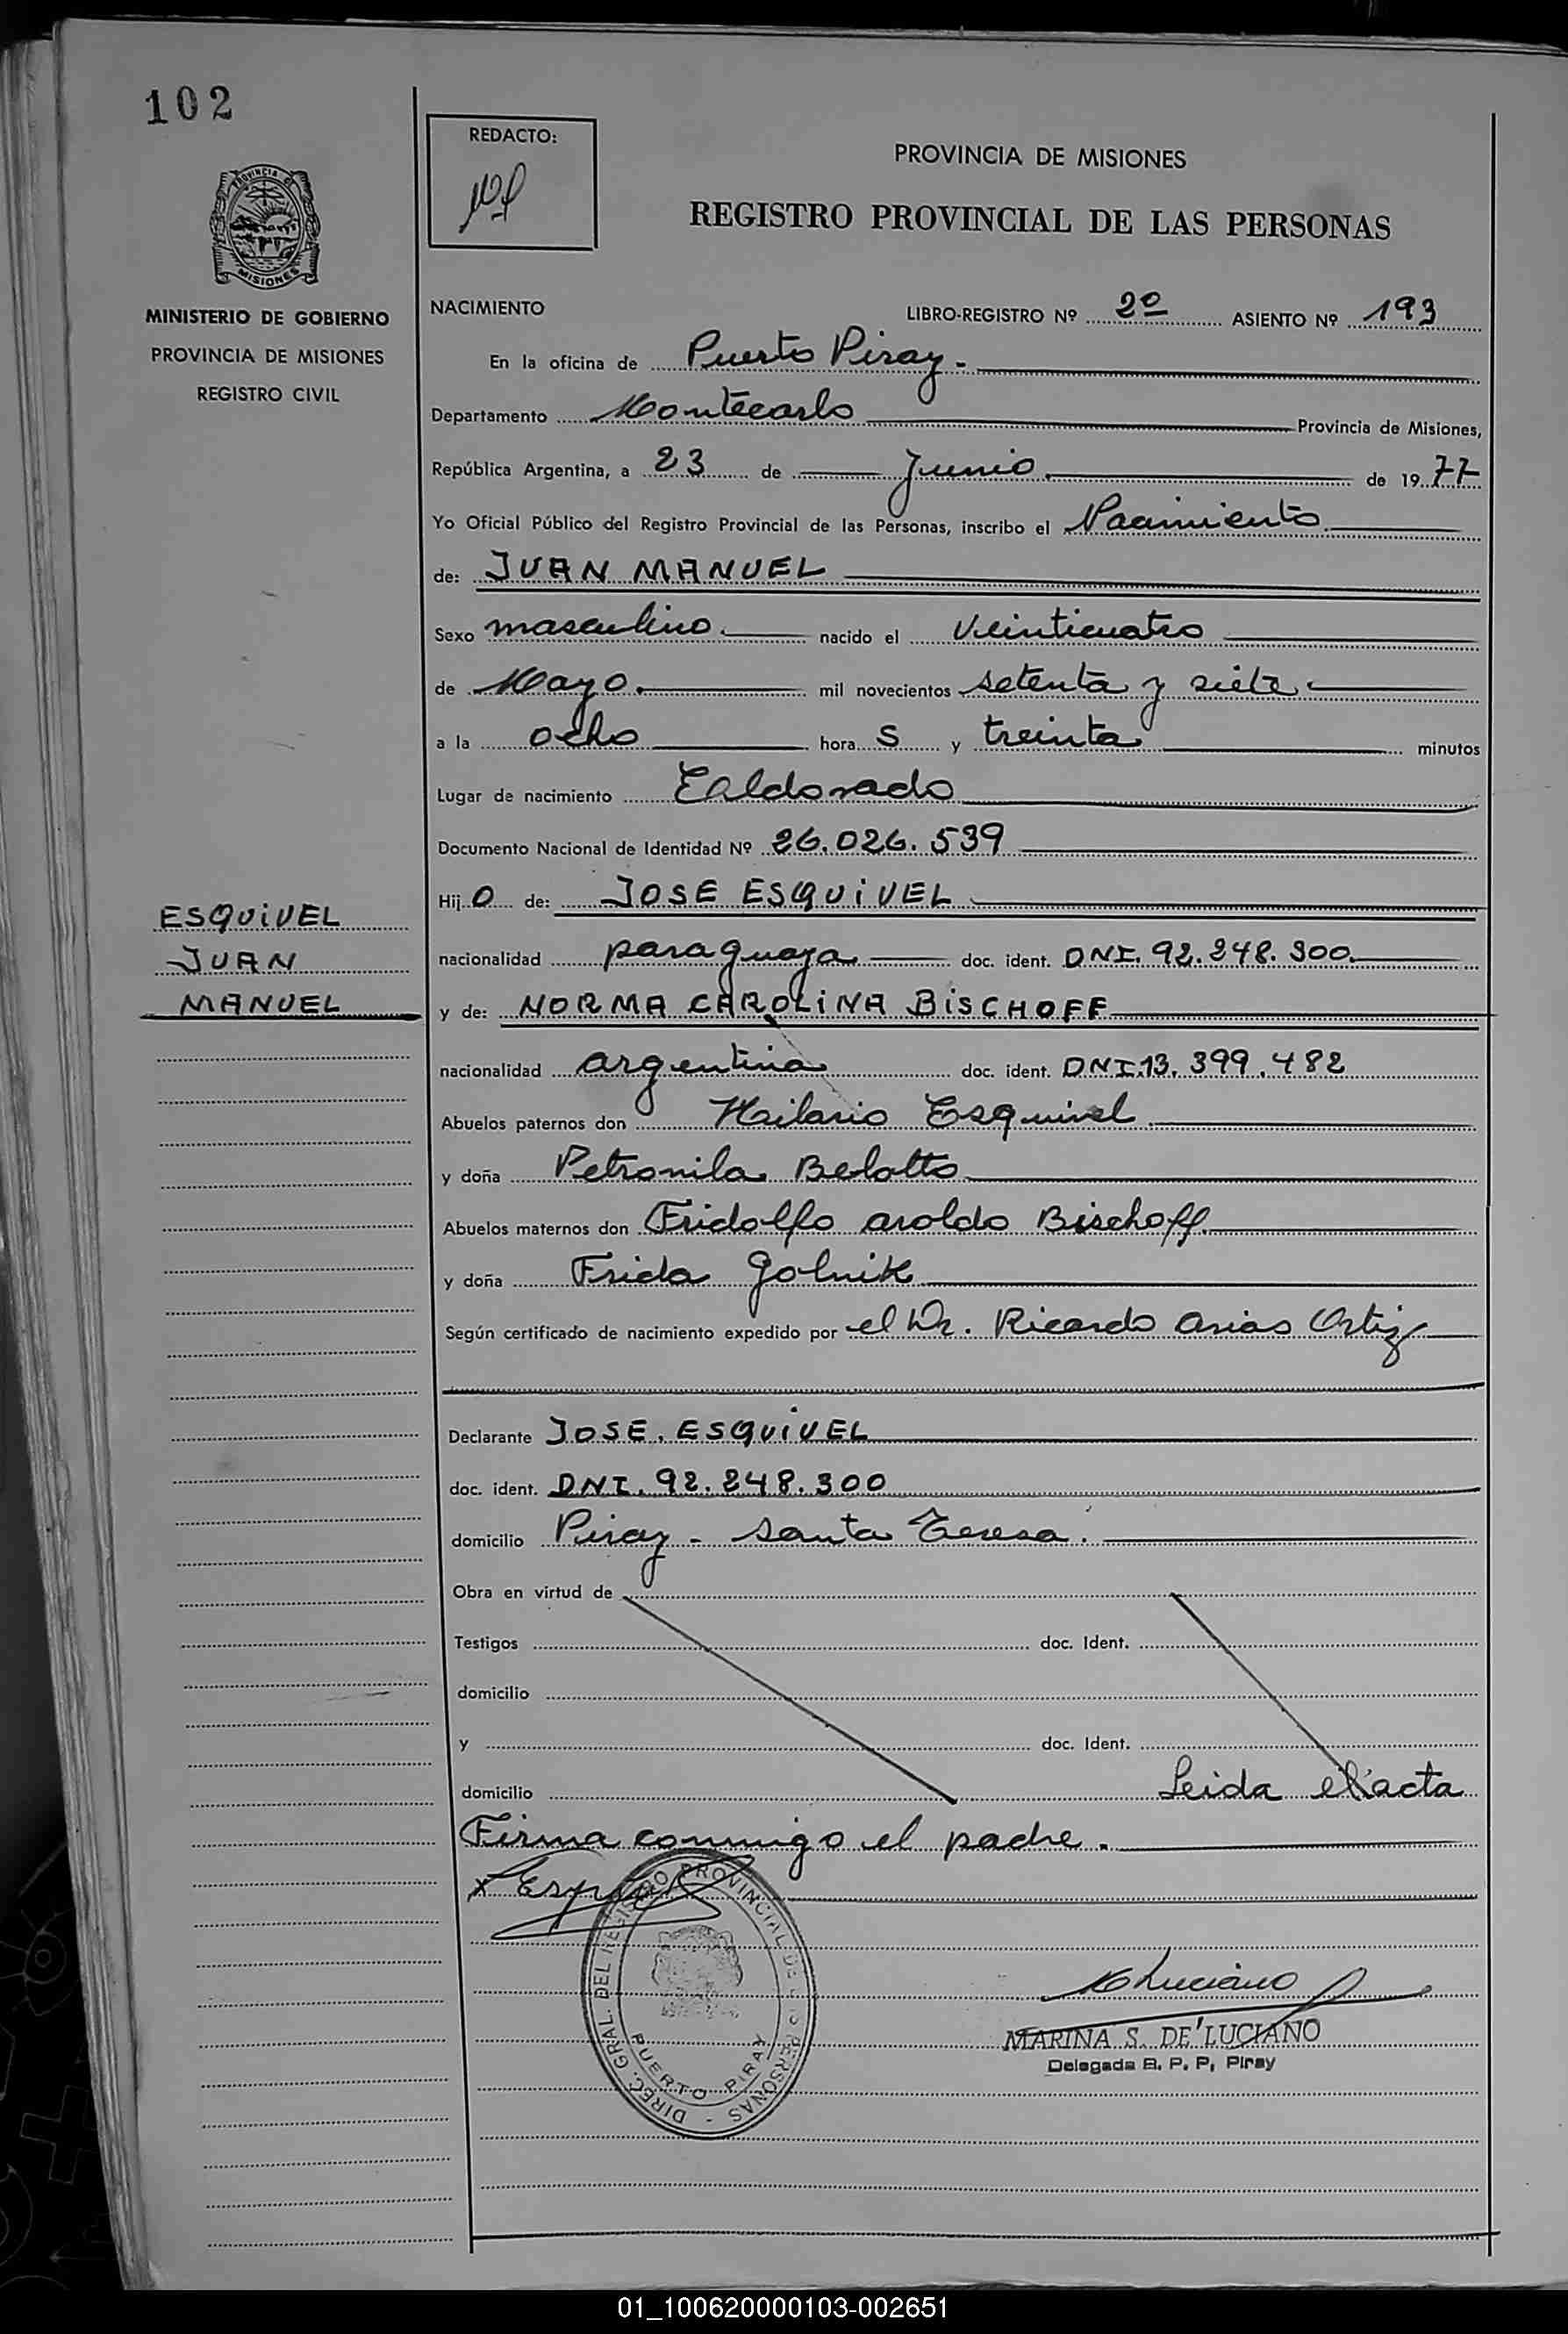 102
REDACTO:
PROVINCIA DE MISIONES
REGISTRO PROVINCIAL DE LAS PERSONAS
PROVINCIA DE
MISIONES
MINISTERIO DE GOBIERNO
PROVINCIA DE MISIONES
REGISTRO CIVIL
NACIMIENTO LIBRO-REGISTRO Nº 2º ASIENTO Nº 193
En la oficina de Puerto Piray.-
Departamento Montecarlo Provincia de Misiones,
República Argentina, a 23 de Junio de 1977
Yo Oficial Público del Registro Provincial de las Personas, inscribo el Nacimiento
de: JUAN MANUEL
Sexo masculino nacido el Veinticuatro
de Mayo. mil novecientos setenta y siete
a la ocho hora s y treinta minutos
Lugar de nacimiento Ealdorado
Documento Nacional de Identidad Nº 26.026.539
Hijo de: JOSE ESQUiVEL
ESQUiVEL
JUAN
MANUEL
nacionalidad paraguaya doc. ident. DNI. 92.248.300
y de: NORMA CAROLiNA BiSCHOFF
nacionalidad argentina doc. ident. DNI.13.399.482
Abuelos paternos don Hilario Esquivel
y doña Petronila Belotto
Abuelos maternos don Fridolfo aroldo Bischoff.
y doña Frida Golnik
Según certificado de nacimiento expedido por el Dr. Ricardo Arias Ortiz
Declarante JOSE. ESQUiVEL
doc. ident. DNI. 92.248.300
domicilio Piray - Santa Teresa.
Obra en virtud de
Testigos doc. Ident.
domicilio
y doc. Ident.
domicilio Leida el acta
Firma conmigo el padre.
DIREC. GRAL. DEL REGISTRO PROVINCIAL DE LAS PERSONAS -
PUERTO PIRAY
MARINA S. DE LUCIANO
Delegada R. P. P, Piray
01_100620000103-002651